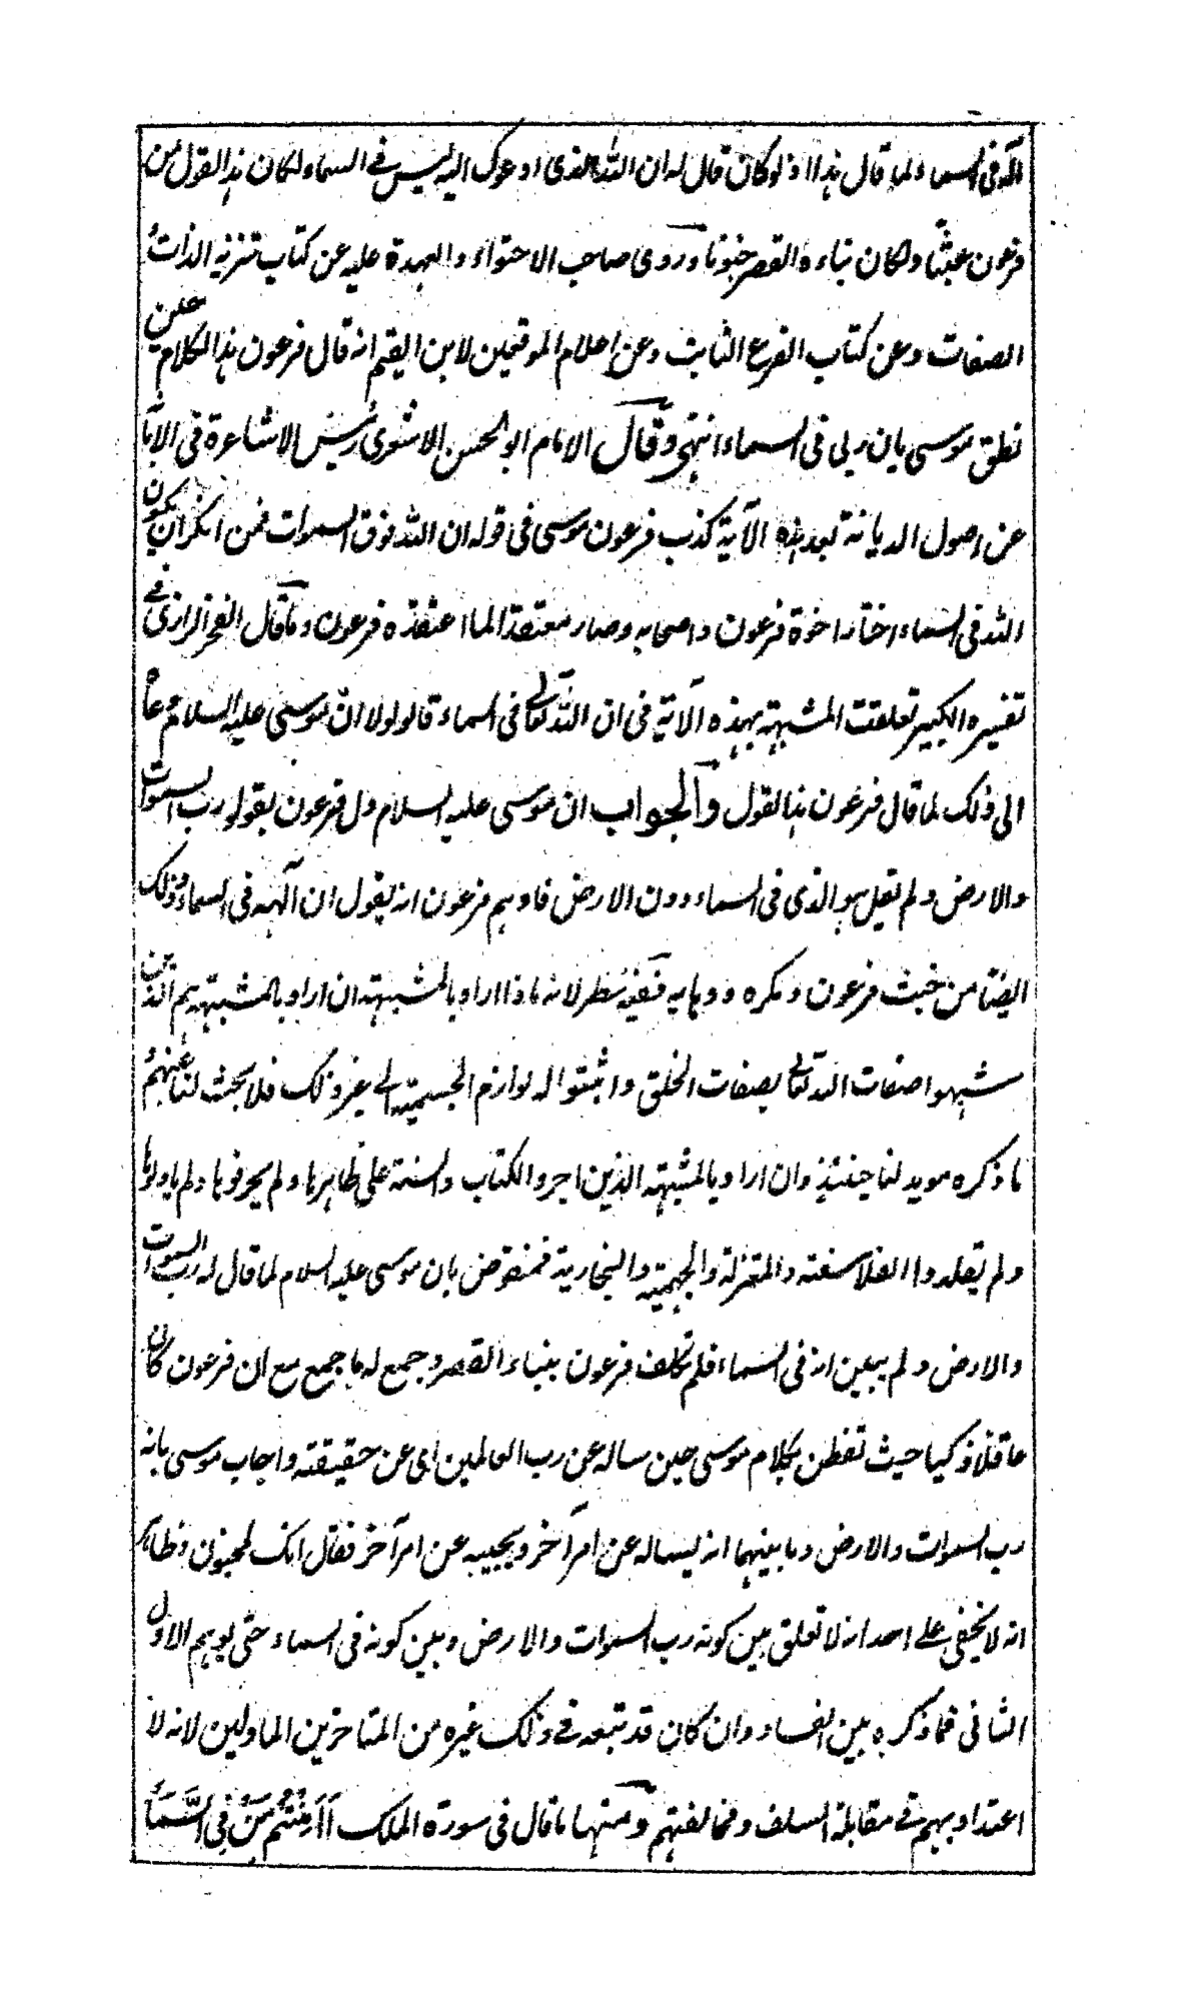 اله فى السماء ولما قال هذا اذ لو كان قال له ان الله الذى ادعوك اليه ليس فى السماء لكان هذا القول من
فرعون عبثا ولكان بناءه القصر جنونا وروى صاحب الاحتواء والعهدة عليه عن كتاب تنزيه الذات و
الصفات وعن كتاب الفرع الثابت وعن اعلام الموقعين لابن القيم انه قال فرعون هذا الكلام حين
نطق موسى بان ربى فى السماء انتهى وقال الامام ابو الحسن الاشعرى رئيس الاشاعرة فى الابانة
عن اصول الديانة بعد هذه الآية كذب فرعون موسى فى قوله ان الله فوق السموات فمن انكر ان يكون
الله فى السماء اختار اخوة فرعون واصحابه وصار معتقدا لما اعتقده فرعون وما قال الفخر الرازى فى
تفسيره الكبير تعلقت المشبهة بهذه الآية فى ان الله تعالى فى السماء قالوا لولا ان موسى عليه السلام دعا
الى ذلك لما قال فرعون هذا القول والجواب ان موسى عليه السلام دل فرعون بقوله رب السموات
والارض ولم يقل هو الذى فى السماء دون الارض فاوهم فرعون انه يقول ان آلهه فى السماء وذلك
ايضا من خبث فرعون ومكره ودهايه ففيه نظر لانه ماذا اراد بالمشبهة ان اراد بالمشبهة هم الذين
شبهوا صفات الله تعالى بصفات الخلق واثبتوا له لوازم الجسمية الى غير ذلك فلا بحث لنا عنهم و
ما ذكره مويد لنا حينئذ وان اراد بالمشبهة الذين اجروا الكتاب والسنة على ظاهرها ولم يحرفوها ولم ياولوها
ولم يقلدوا الفلاسفة والمعتزلة والجهمية والنجارية فمنقوض بان موسى عليه السلام لما قال له رب السموات
والارض ولم يبين انه فى السماء فلم تكلف فرعون ببناء القصر وجمع له ما جمع مع ان فرعون كان
عاقلا ذكيا حيث تفطن بكلام موسى حين ساله عن رب العالمين اى عن حقيقته واجاب موسى بانه
رب السموات والارض وما بينهما انه يساله عن امر آخر ويجيبه عن امر آخر فقال انك لمجنون وظاهر
انه لا يخفى على احد انه لا تعلق بين كونه رب السموات والارض وبين كونه فى السماء حتى يوهم الاول
الثانى فما ذكره بين الفساد وان كان قد تبعه فى ذلك غيره من المتاخرين الماولين لانه لا
اعتداد بهم فى مقابلة السلف ومخالفتهم ومنها ما قال فى سورة الملك أَأَمِنْتُمْ مَنْ فِى السَّمَاءِ